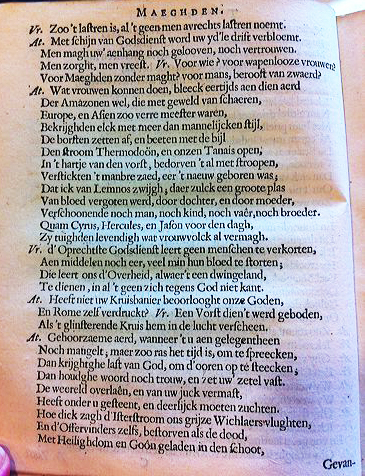 MAEGHDEN.
Vr. Zoo 't lastren is, al 't geen men avrechts lastren noemt.
At. Met schijn van Godsdienst word uw yd'le drift verbloemt.
Men magh uw' aenhang noch gelooven, noch vertrouwen.
Men zorght, men vreest. Vr. Voor wie? voor wapenlooze vrouwen?
Voor Maeghden zonder maght? voor mans, berooft van zwaerd?
At. Wat vrouwen konnen doen, bleeck eertijds aen dien aerd
Der Amazonen wel, die met geweld van schaeren,
Europe, en Asien zoo verre meester waren,
Bekrijghden elck met meer dan mannelijcken stijl,
De borsten zetten af, en beeten met de bijl
Den stroom Thermodoön, en onzen Tanais open,
In 't hartje van den vorst, bedorven 't al met stroopen,
Verstickten 't manbre zaed, eer 't naeuw geboren was;
Dat ick van Lemnos zwijgh; daer zulck een groote plas
Van bloed vergoten werd, door dochter, en door moeder,
Verschoonende noch man, noch kind, noch vaêr, noch broeder.
Quam Cyrus, Hercules, en Jason voor den dagh,
Zy tuighden levendigh wat vrouwvolck al vermagh.
Vr. d'Oprechtste Godsdienst leert geen menschen te verkorten,
Aen middelen noch eer, veel min hun bloed te storten;
Die leert ons d'Overheid, alwaer't een dwingeland,
Te dienen, in al 't geen zich tegens God niet kant.
At. Heeft niet uw Kruisbanier beoorlooght onze Goden,
En Rome zelf verdruckt? Vr. Een Vorst dien't werd geboden,
Als 't glinsterende Kruis hem in de lucht verscheen.
At. Gehoorzaeme aerd, wanneer 't u aen gelegentheen
Noch mangelt; maer zoo ras het tijd is, om te spreecken,
Dan krijghtghe last van God, om d'ooren op te steecken;
Dan houdghe woord noch trouw, en zet uw' zetel vast.
De weereld overlaên, en van uw juck vermast,
Heeft onder u gesteent, en deerlijck moeten zuchten.
Hoe dick zagh d'Isterstroom ons grijze Wichlaersvlughten,
En d'Offervinders zelfs, bestorven als de dood,
Met Heilighdom en Goôn geladen in den schoot,
Gevan-